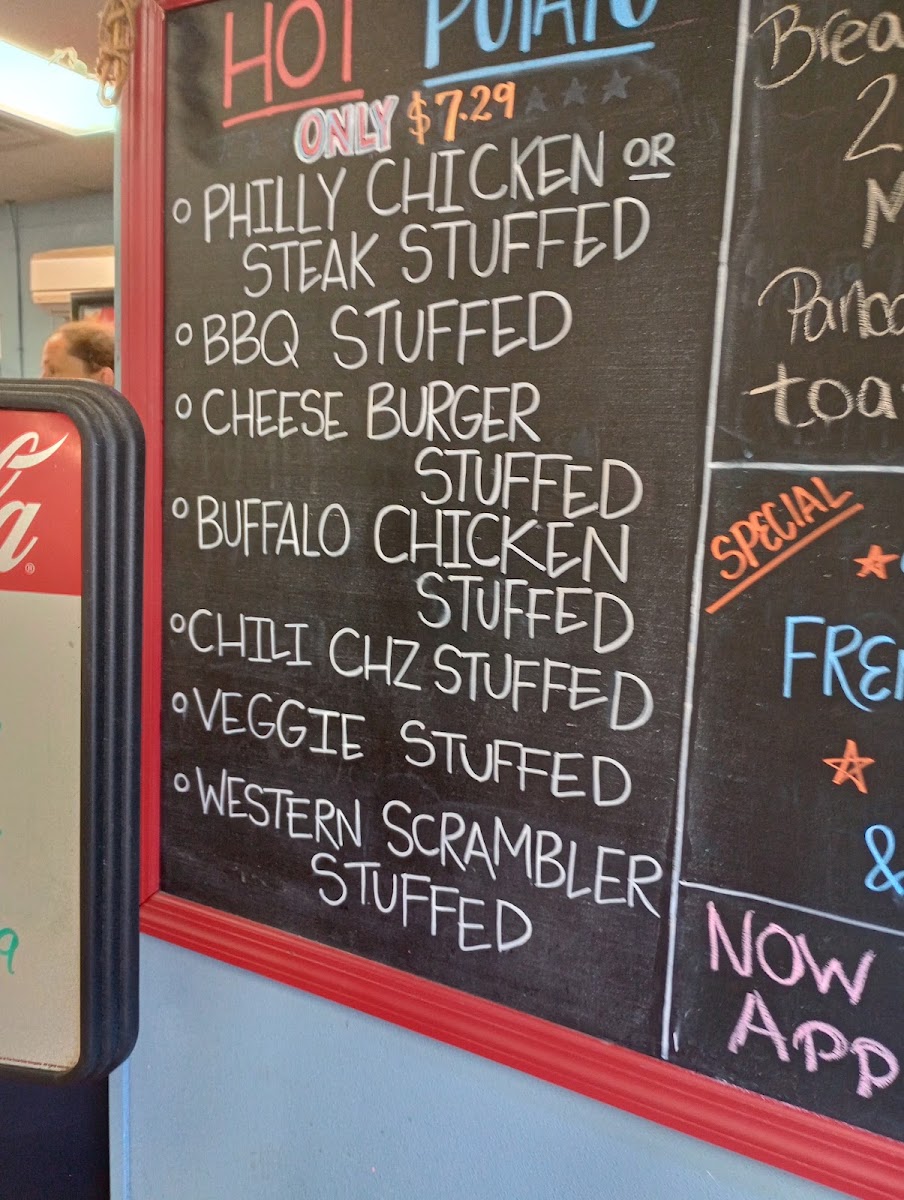 HOT POTATO
ONLY $7.29
PHILLY CHICKEN OR
STEAK STUFFED
BBQ STUFFED
CHEESE BURGER
STUFFED
BUFFALO CHICKEN
STUFFED
CHILI CHZ STUFFED
VEGGIE STUFFED
WESTERN SCRAMBLER
STUFFED
2
SPECIAL
&
NOW
9